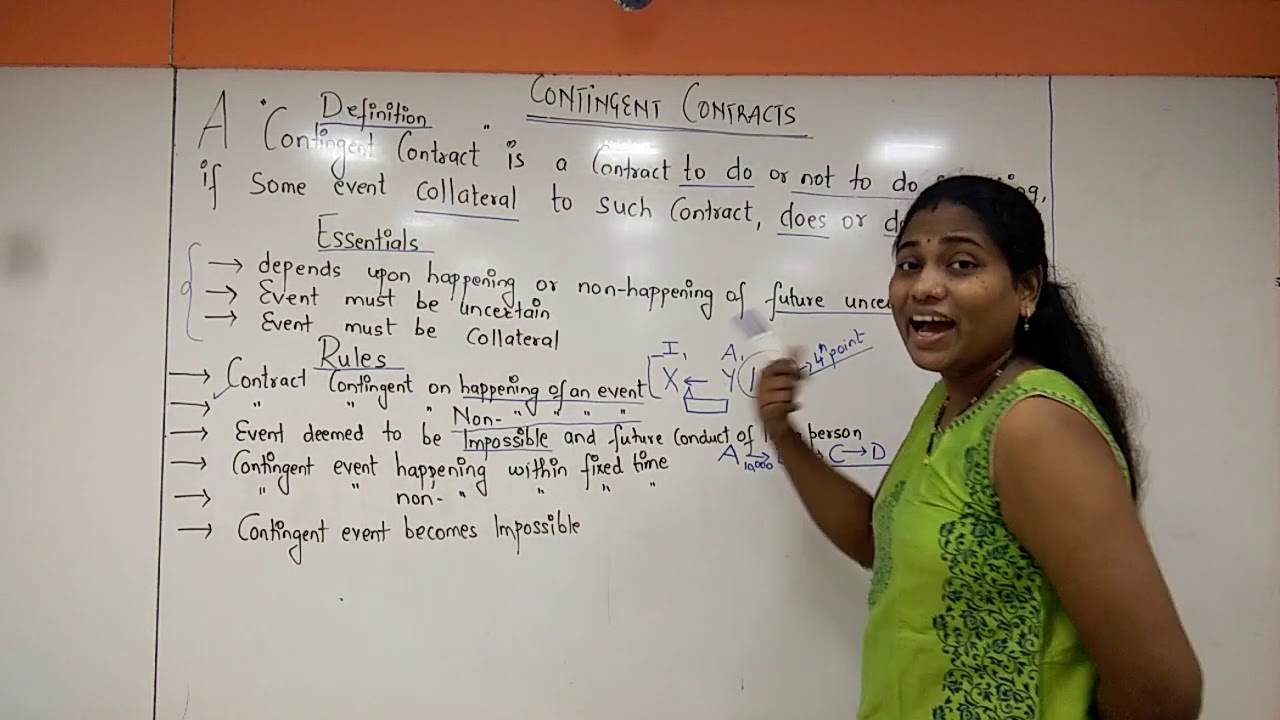 CONTINGENT CONTRACTS
Definition
A "Contingent Contract" is a Contract to do or not to do
if Some event Collateral to such Contract, does or
Essentials
→ depends upon happening or non-happening of future
→ Event must be Uncertain
→ Event must be Collateral
Rules
→ Contract Contingent on happening of an event
→ " " " Non- " " " "
→ Event deemed to be Impossible and future Conduct of person
→ Contingent event happening within fixed time
→ " " non- " " " "
→ Contingent event becomes Impossible
I, A,
X ← Y
→ 4th point
A → 10,000 C → D